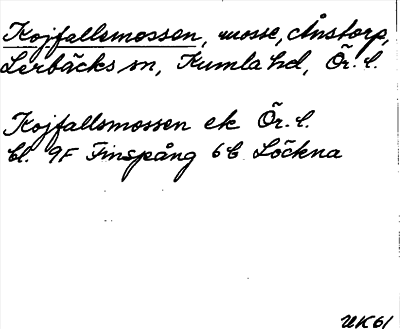 Kojfallsmossen, mosse, Ånstorp,
Lerbäcks sn, Kumla hd, Ör. l.
Kojfallsmossen ek Ör. l.
bl. 9F Finspång 6b Löckna
UK 61